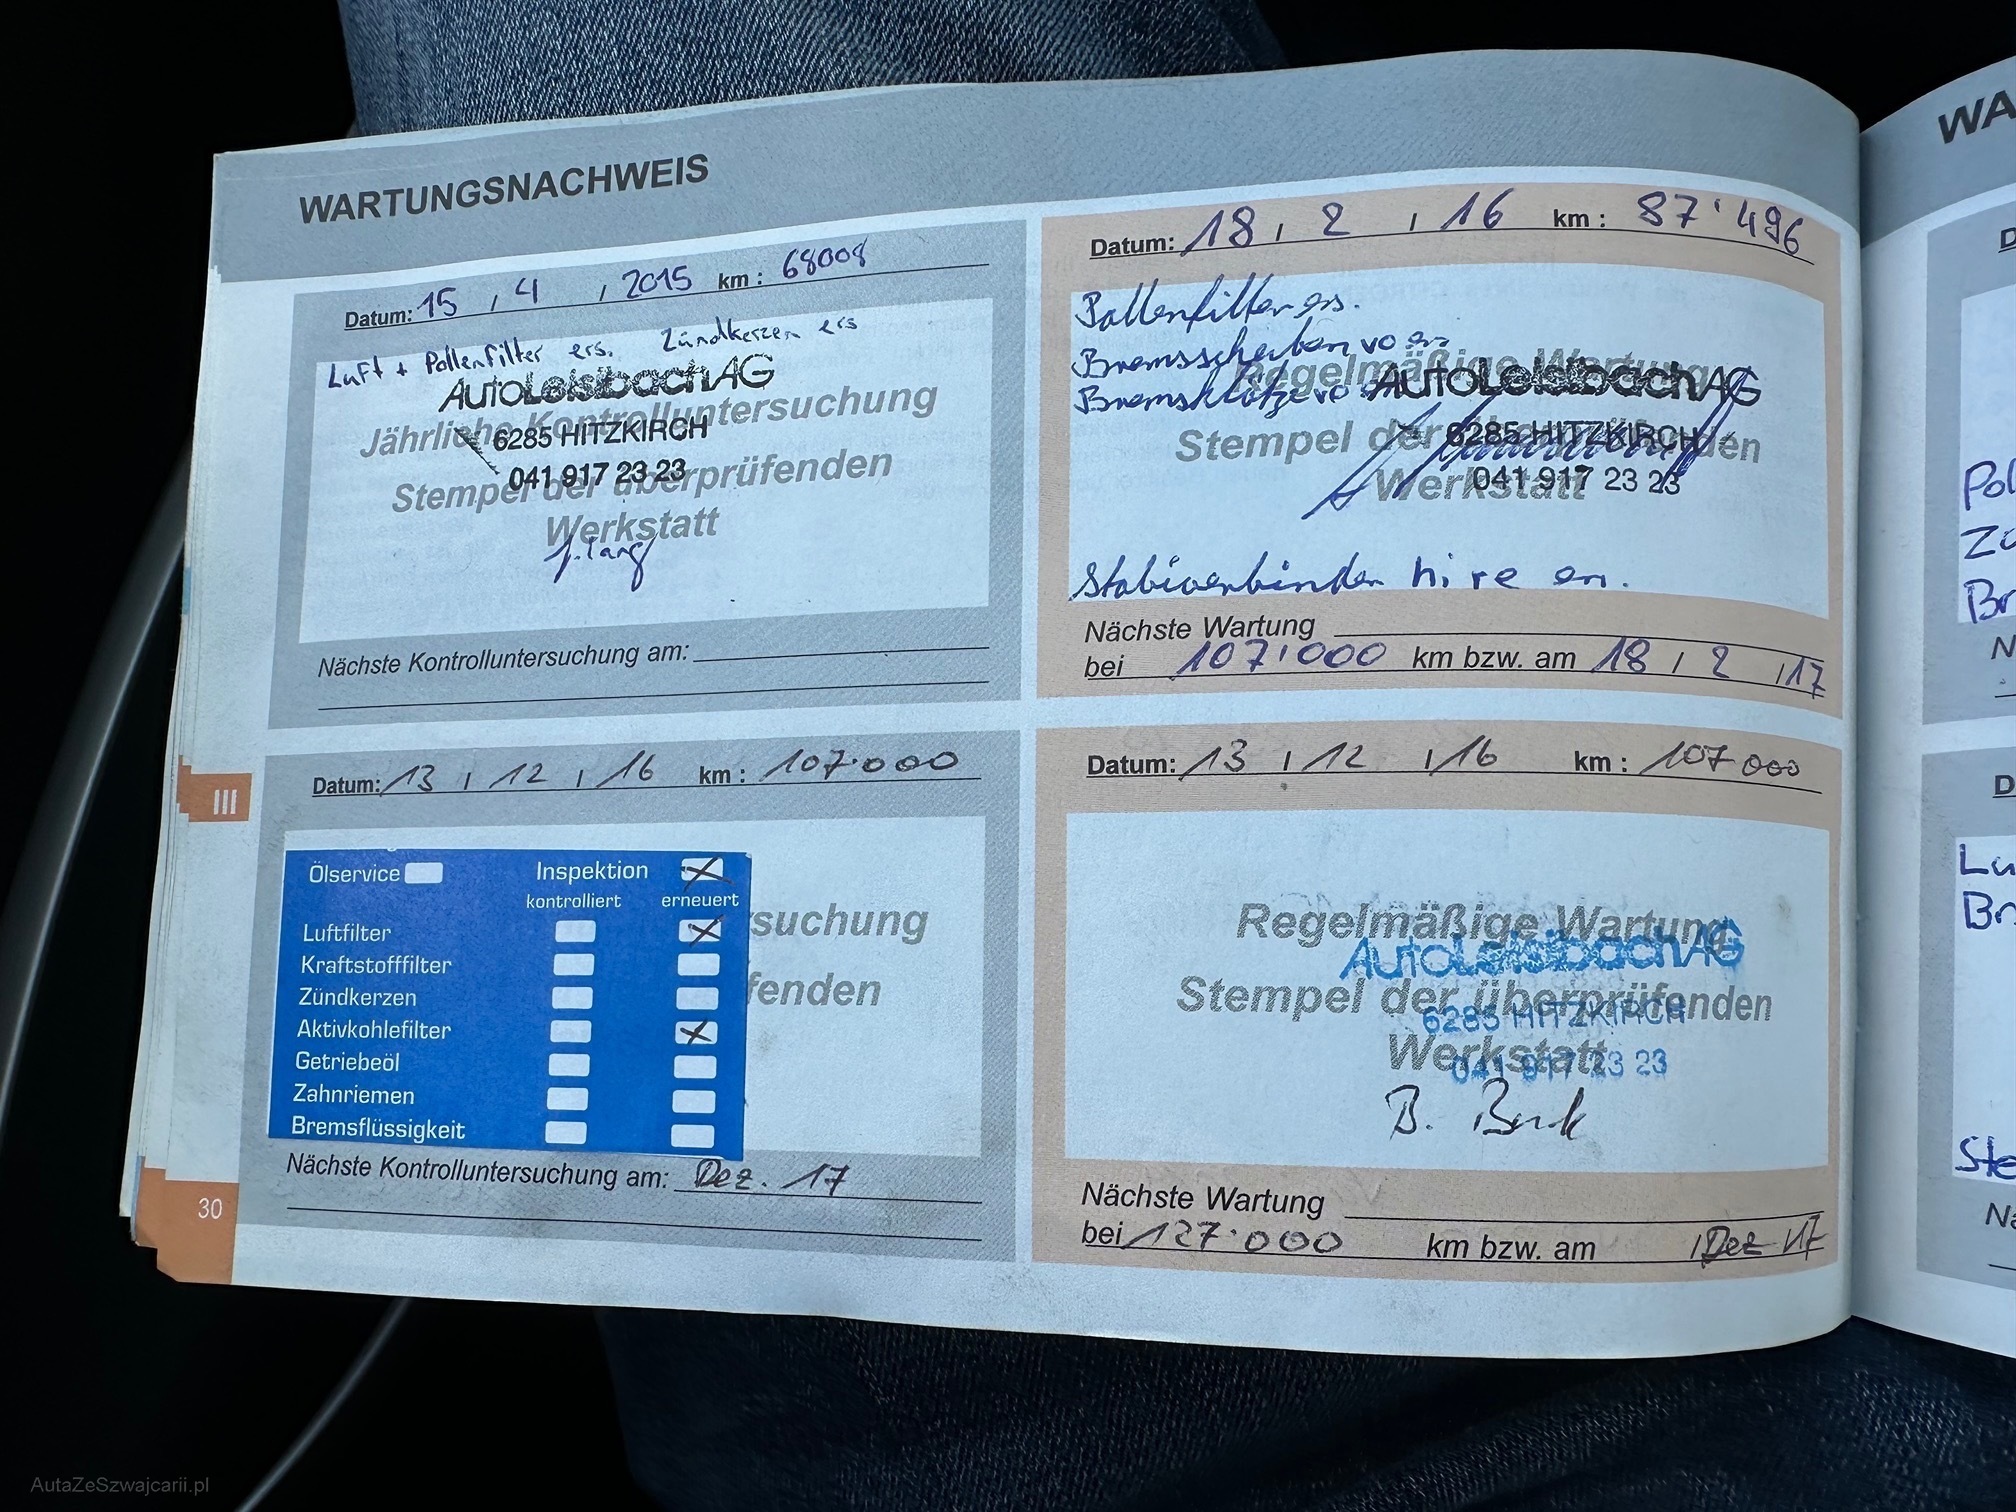 WARTUNGSNACHWEIS
Datum: 15 , 4 , 2015 km : 68008
Luft + Pollenfilter ers. Zündkerzen ers
AutoLeisibachAG
Jährliche Kontrolluntersuchung
6285 HITZKIRCH
041 917 23 23
Stempel der überprüfenden
Werkstatt
J. Lang
Nächste Kontrolluntersuchung am:
Datum: 18 , 2 , 16 km : 87'496
Pollenfilter ers.
Bremsscheiben vo ers
Bremsklötze vo
Regelmäßige Wartung
AutoLeisibachAG
Stempel der überprüfenden
6285 HITZKIRCH
Werkstatt
041 917 23 23
Stabiverbinder hi re ers.
Nächste Wartung
bei 107'000 km bzw. am 18 , 2 , 17
Datum: 13 , 12 , 16 km : 107'000
Ölservice Inspektion
kontrolliert erneuert
Luftfilter
Kraftstofffilter
Zündkerzen
Aktivkohlefilter
Getriebeöl
Zahnriemen
Bremsflüssigkeit
suchung
fenden
Nächste Kontrolluntersuchung am: Dez. 17
Datum: 13 , 12 , 16 km : 107 000
Regelmäßige Wartung
AutoLeisibachAG
Stempel der überprüfenden
6285 HITZKIRCH
Werkstatt
041 917 23 23
Nächste Wartung
bei 127'000 km bzw. am , Dez 17
III
30
WA
Pol
Br
Lu
Br
Ste
AutaZeSzwajcarii.pl